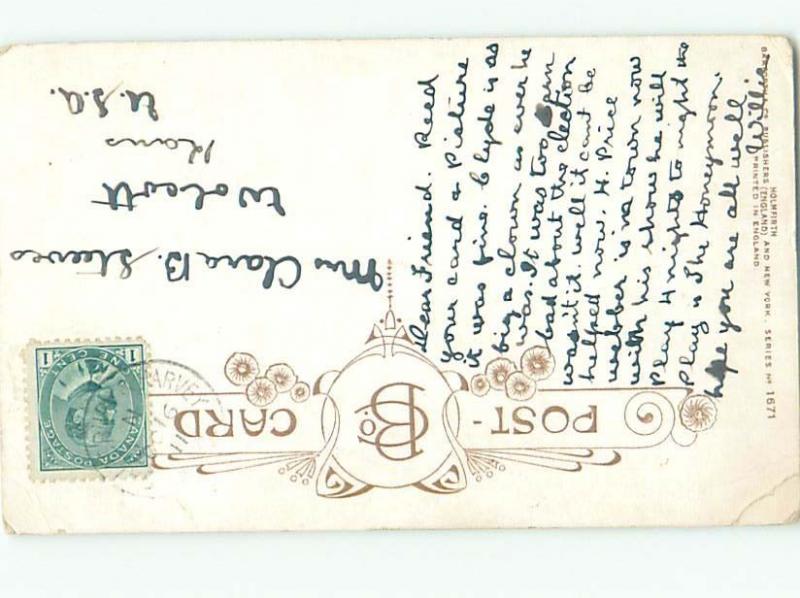 POST-
CARD
Co
Dear Friend. Recd
your card & Picture
it was fine. Clyde is as
big a clown as ever he
was. It was too
bad about the election
wasn't it. well it cant be
helped now. H. Price
webber is in town now
with his show he will
Play 4 nights to night the
Play is The Honeymoon.
hope you are all well
Willie
Mrs Clara B. Steeves
Wolcott
Kans
U.S.A.
CANADA POSTAGE
1 1
ONE CENT
HARVEY
HOLMFIRTH
PUBLISHERS (ENGLAND) AND NEW YORK. SERIES No 1671
PRINTED IN ENGLAND